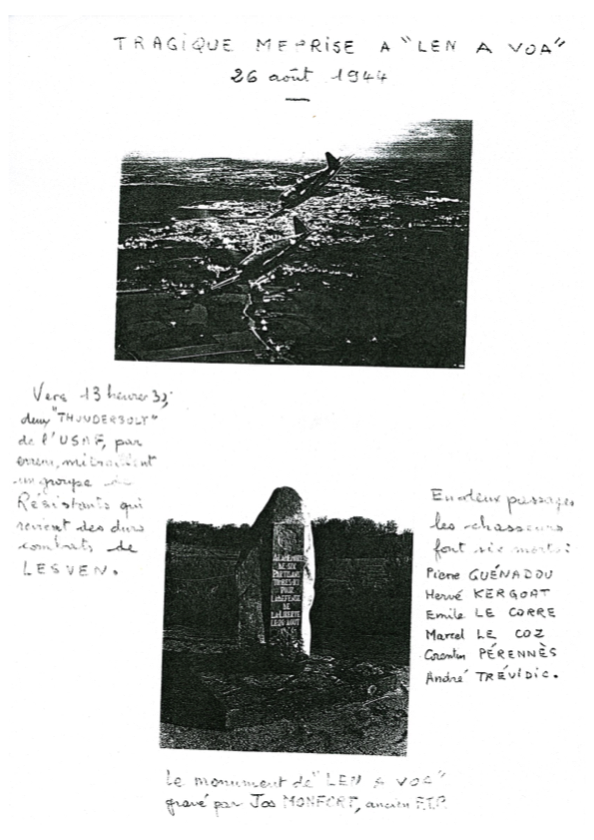 TRAGIQUE MEPRISE A "LEN A VOA"
26 août 1944
Vers 13 heures
deux "THUNDERBOLT"
de l'USAF, par
erreur, mitraillent
un groupe de
Résistants qui
revient des durs
combats de
LESVEN.
En deux passages
les chasseurs
font six morts :
Pierre GUÉNADOU
Hervé KERGOAT
Emile LE CORRE
Marcel LE COZ
Corentin PÉRENNÈS
André TRÉVIDIC.
A LA MEMOIRE
DE SIX
PARTISANS
TOMBES ICI
POUR
LA DEFENSE
DE
LA LIBERTE
LE 26 AOUT
Le monument de "LEN A VOA"
gravé par Jos MONFORT, ancien F.T.P.